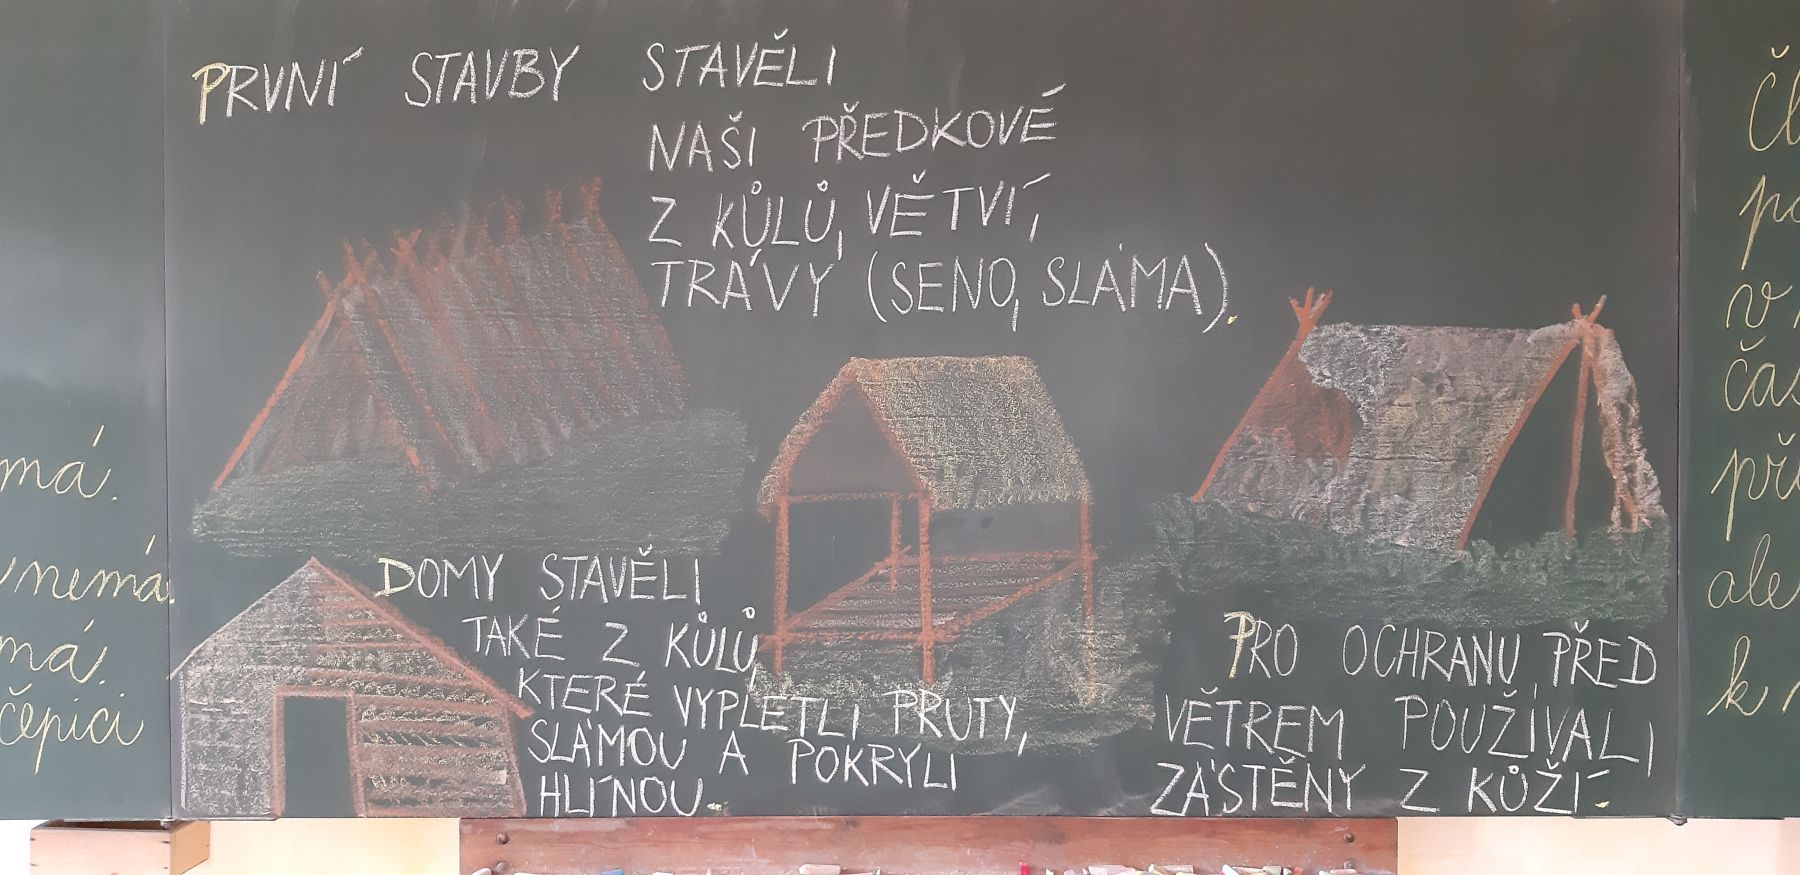 PRVNÍ STAVBY STAVĚLI
NAŠI PŘEDKOVÉ
Z KŮLŮ, VĚTVÍ,
TRÁVY (SENO, SLÁMA).
DOMY STAVĚLI
TAKÉ Z KŮLŮ,
KTERÉ VYPLETLI PRUTY,
SLÁMOU A POKRYLI
HLÍNOU.
PRO OCHRANU PŘED
VĚTREM POUŽÍVALI
ZÁSTĚNY Z KŮŽÍ.
má.
nemá.
má.
čepici
ale
k